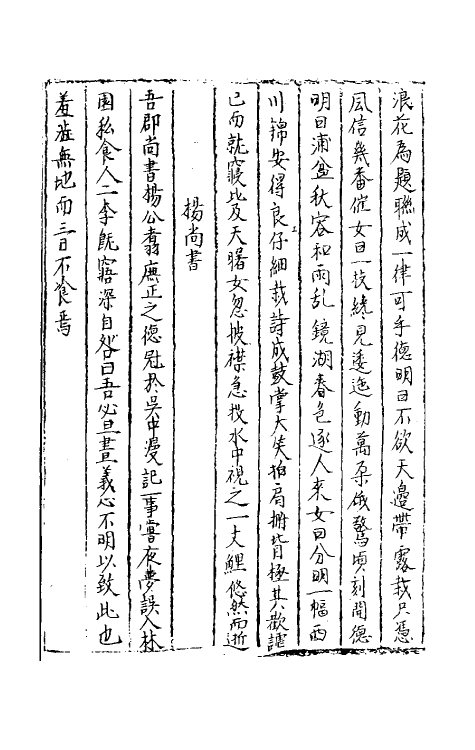 浪花為題聯成一律可乎德明曰不欲天邊帶露栽只憑
風信幾番催女曰一枝繞見逶迤動萬朶俄驚頃刻開德
明曰蒲盆秋容和雨乱鏡湖春色逐人来女曰分明一幅西
川錦安得良仔細栽詩成鼓掌大笑拍肩拊背極其歡謔
已而就寢比及天曙女忽披襟急投水中視之一丈鯉悠然而逝
楊尚書
吾郡尚書楊公翥廉正之德冠於吳中漫記一事嘗夜夢誤入林
園私食人二李既寤深自咎曰吾必旦晝義心不明以致此也
羞澁無地而三日不飡焉